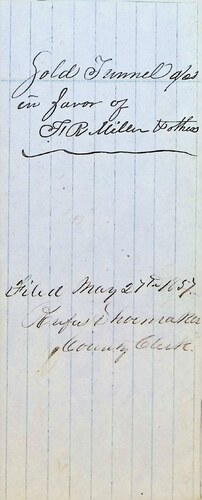 Gold Tunnel a/cs
in favor of
F R Miller & others
Filed May 27th 1857.
Rufus Shoemaker
County Clerk.